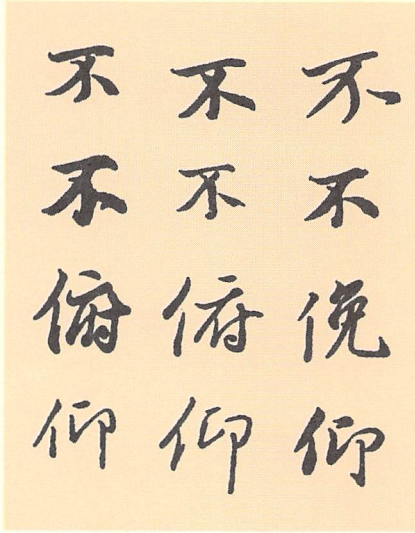 不 不 不
不 不 不
俯 俯 俛
仰 仰 仰